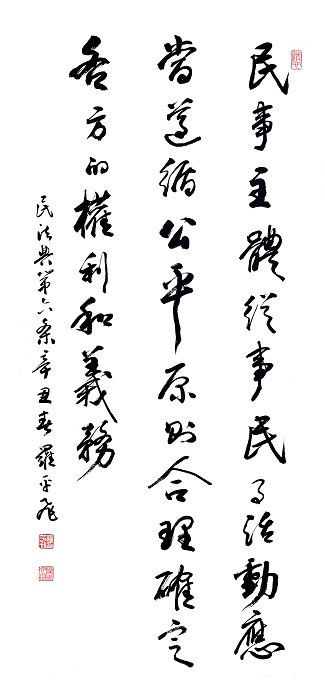 民事主體從事民事活動應
當遵循公平原則合理確定
各方的權利和義務
民法典第六条辛丑春羅平飛